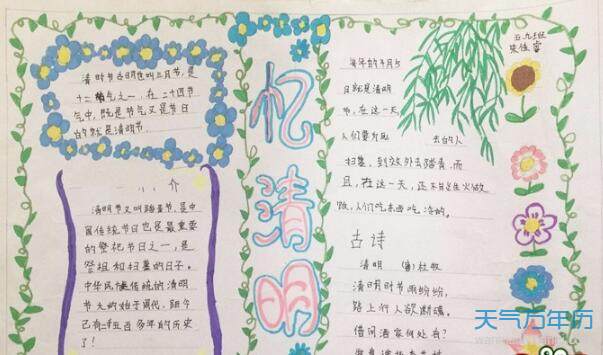 清明节古时也叫三月节,是
十二节气之一。在二十四节
气中,既是节气又是节日
的就是清明节。
小 介
清明节又叫踏青节,是中
国传统节日也是最重要
的祭祀节日之一,是
祭祖和扫墓的日子。
中华民族传统的清明
节大约始于周代,距今
已有二千五百多年的历史
了!
忆清明
每年的4月5
日就是清明
节,在这一天,
人们要为 去的人
扫墓,到郊外去踏青,而
且,在这一天,还不能生火做
饭,人们吃东西吃冷的。
古诗
清明 (唐)杜牧
清明时节雨纷纷,
路上行人欲断魂。
借问酒家何处有?
五九班
天气万年历